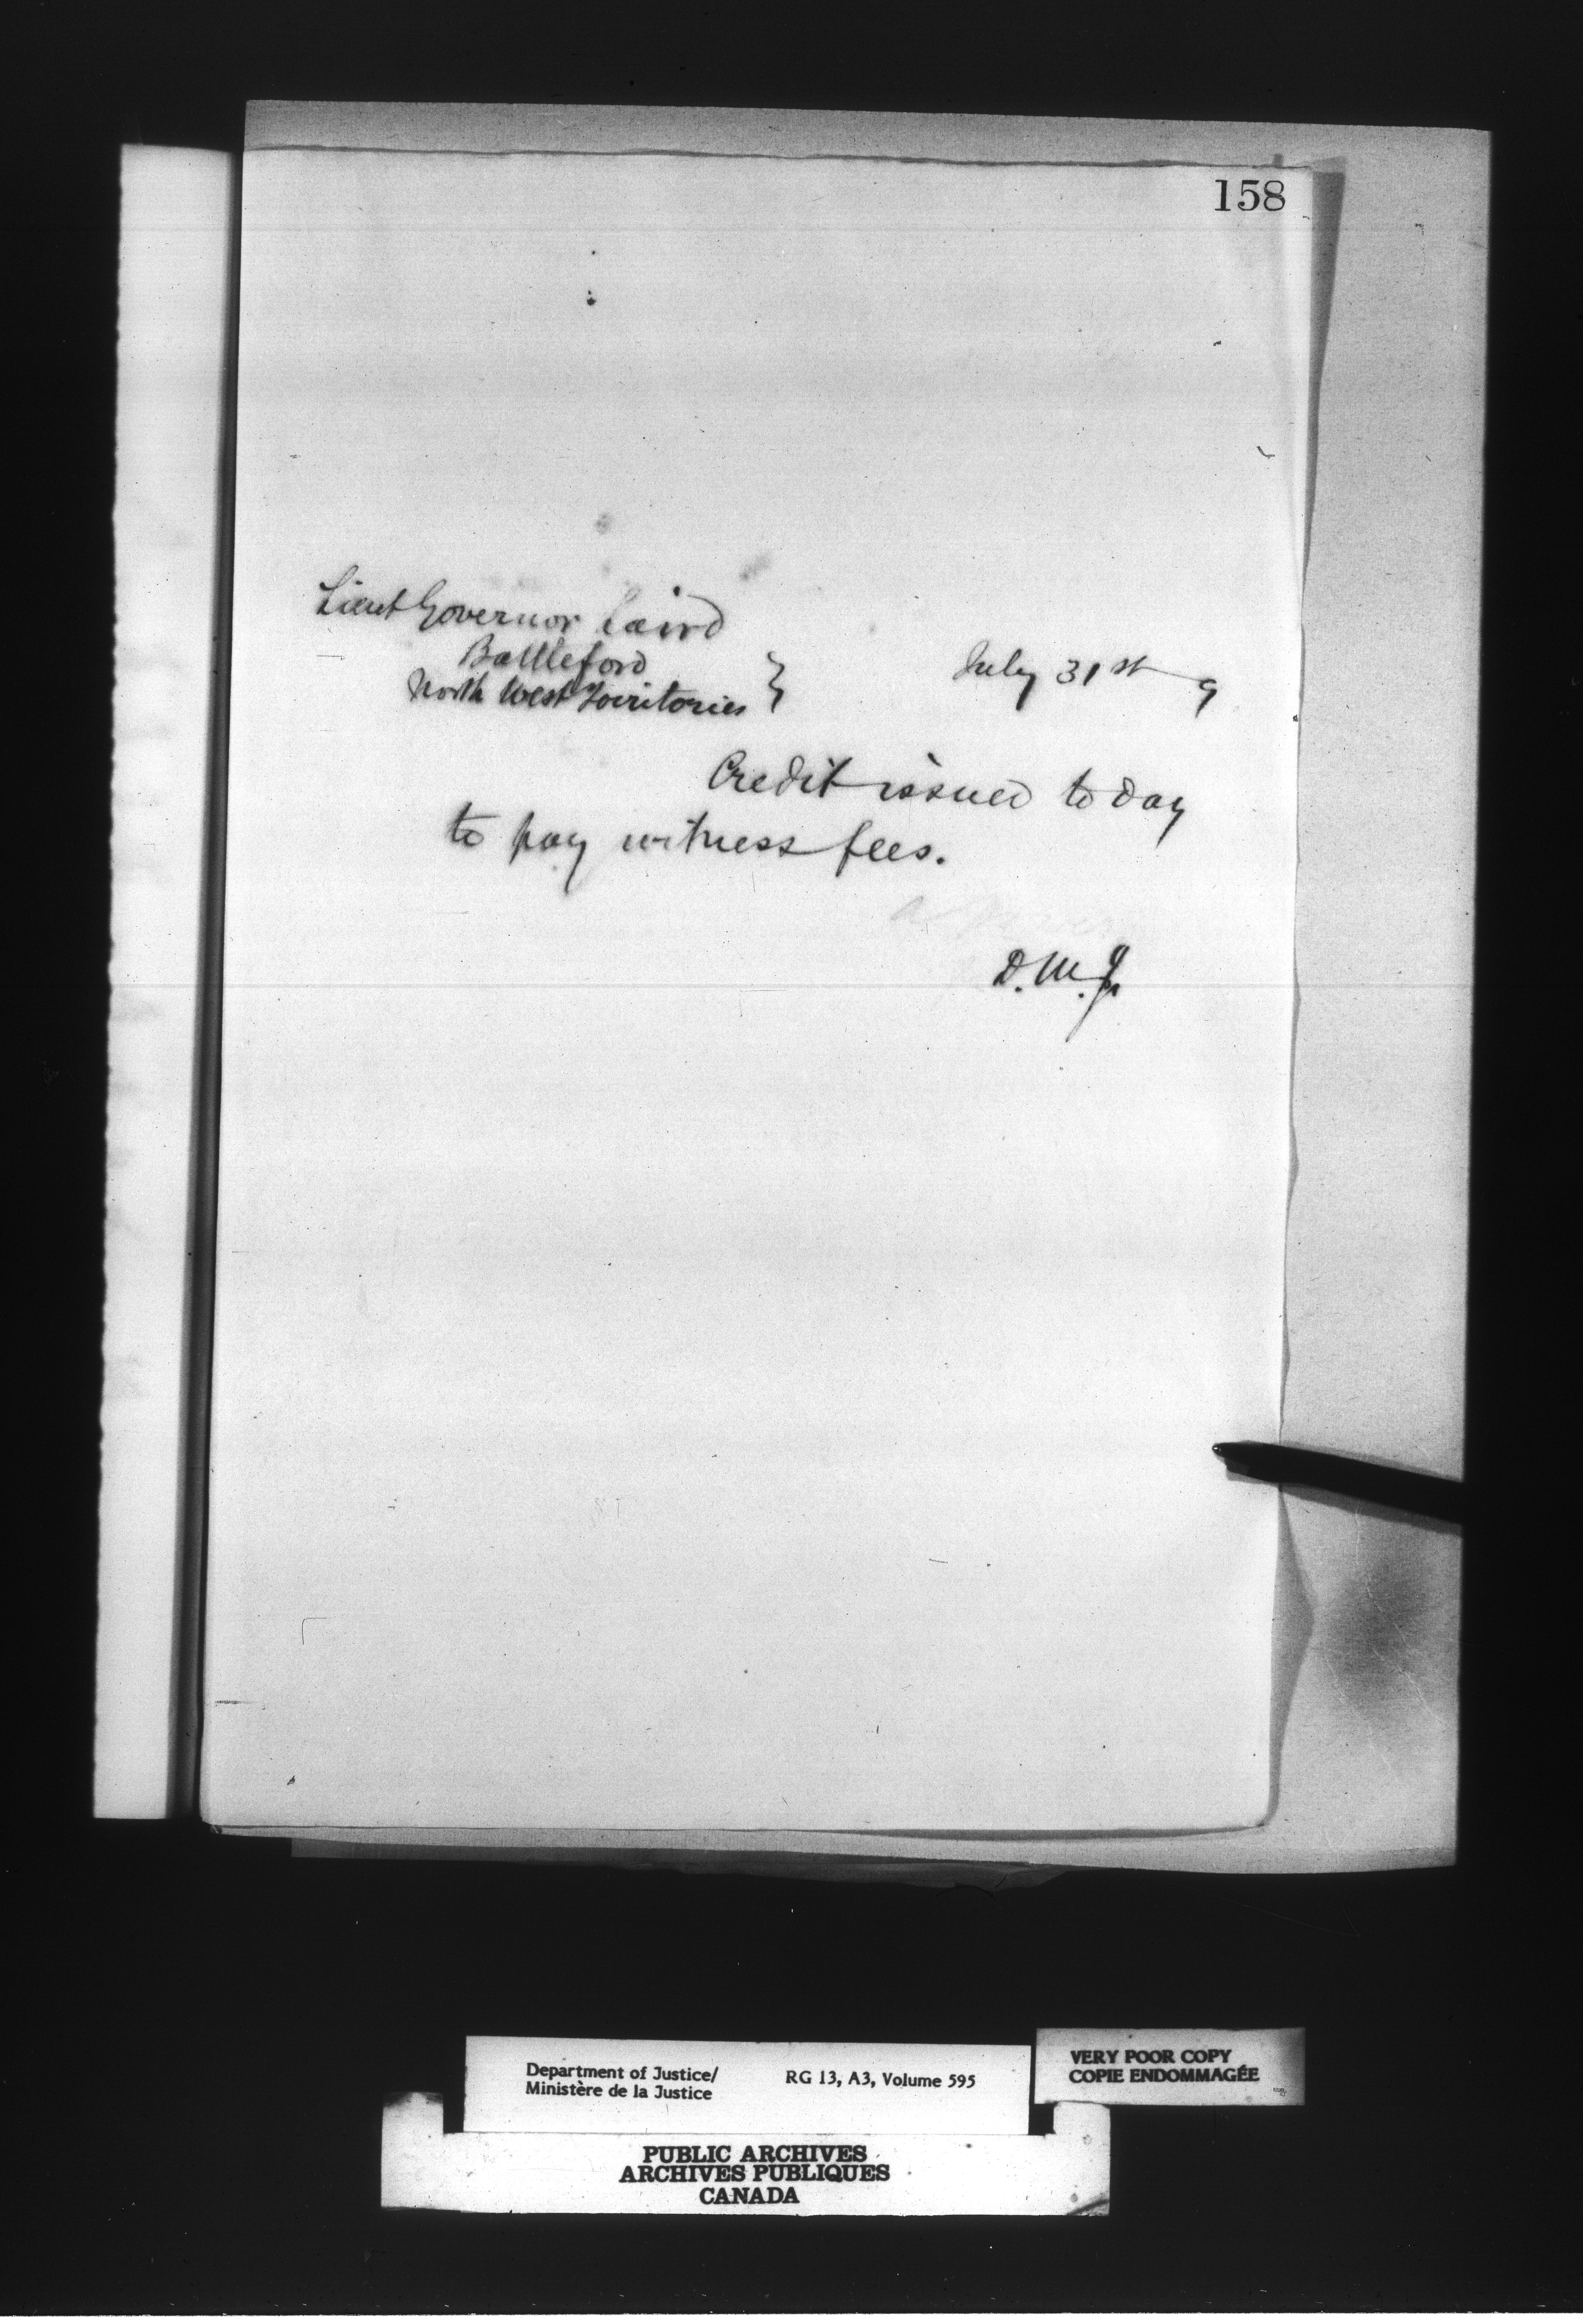 158
Lieut Governor Laird
Battleford
North West Territories }
July 31st 9
Credit issued to day
to pay witness fees.
D. M. J.
Department of Justice/
Ministère de la Justice
RG 13, A3, Volume 595
VERY POOR COPY
COPIE ENDOMMAGÉE
PUBLIC ARCHIVES
ARCHIVES PUBLIQUES
CANADA